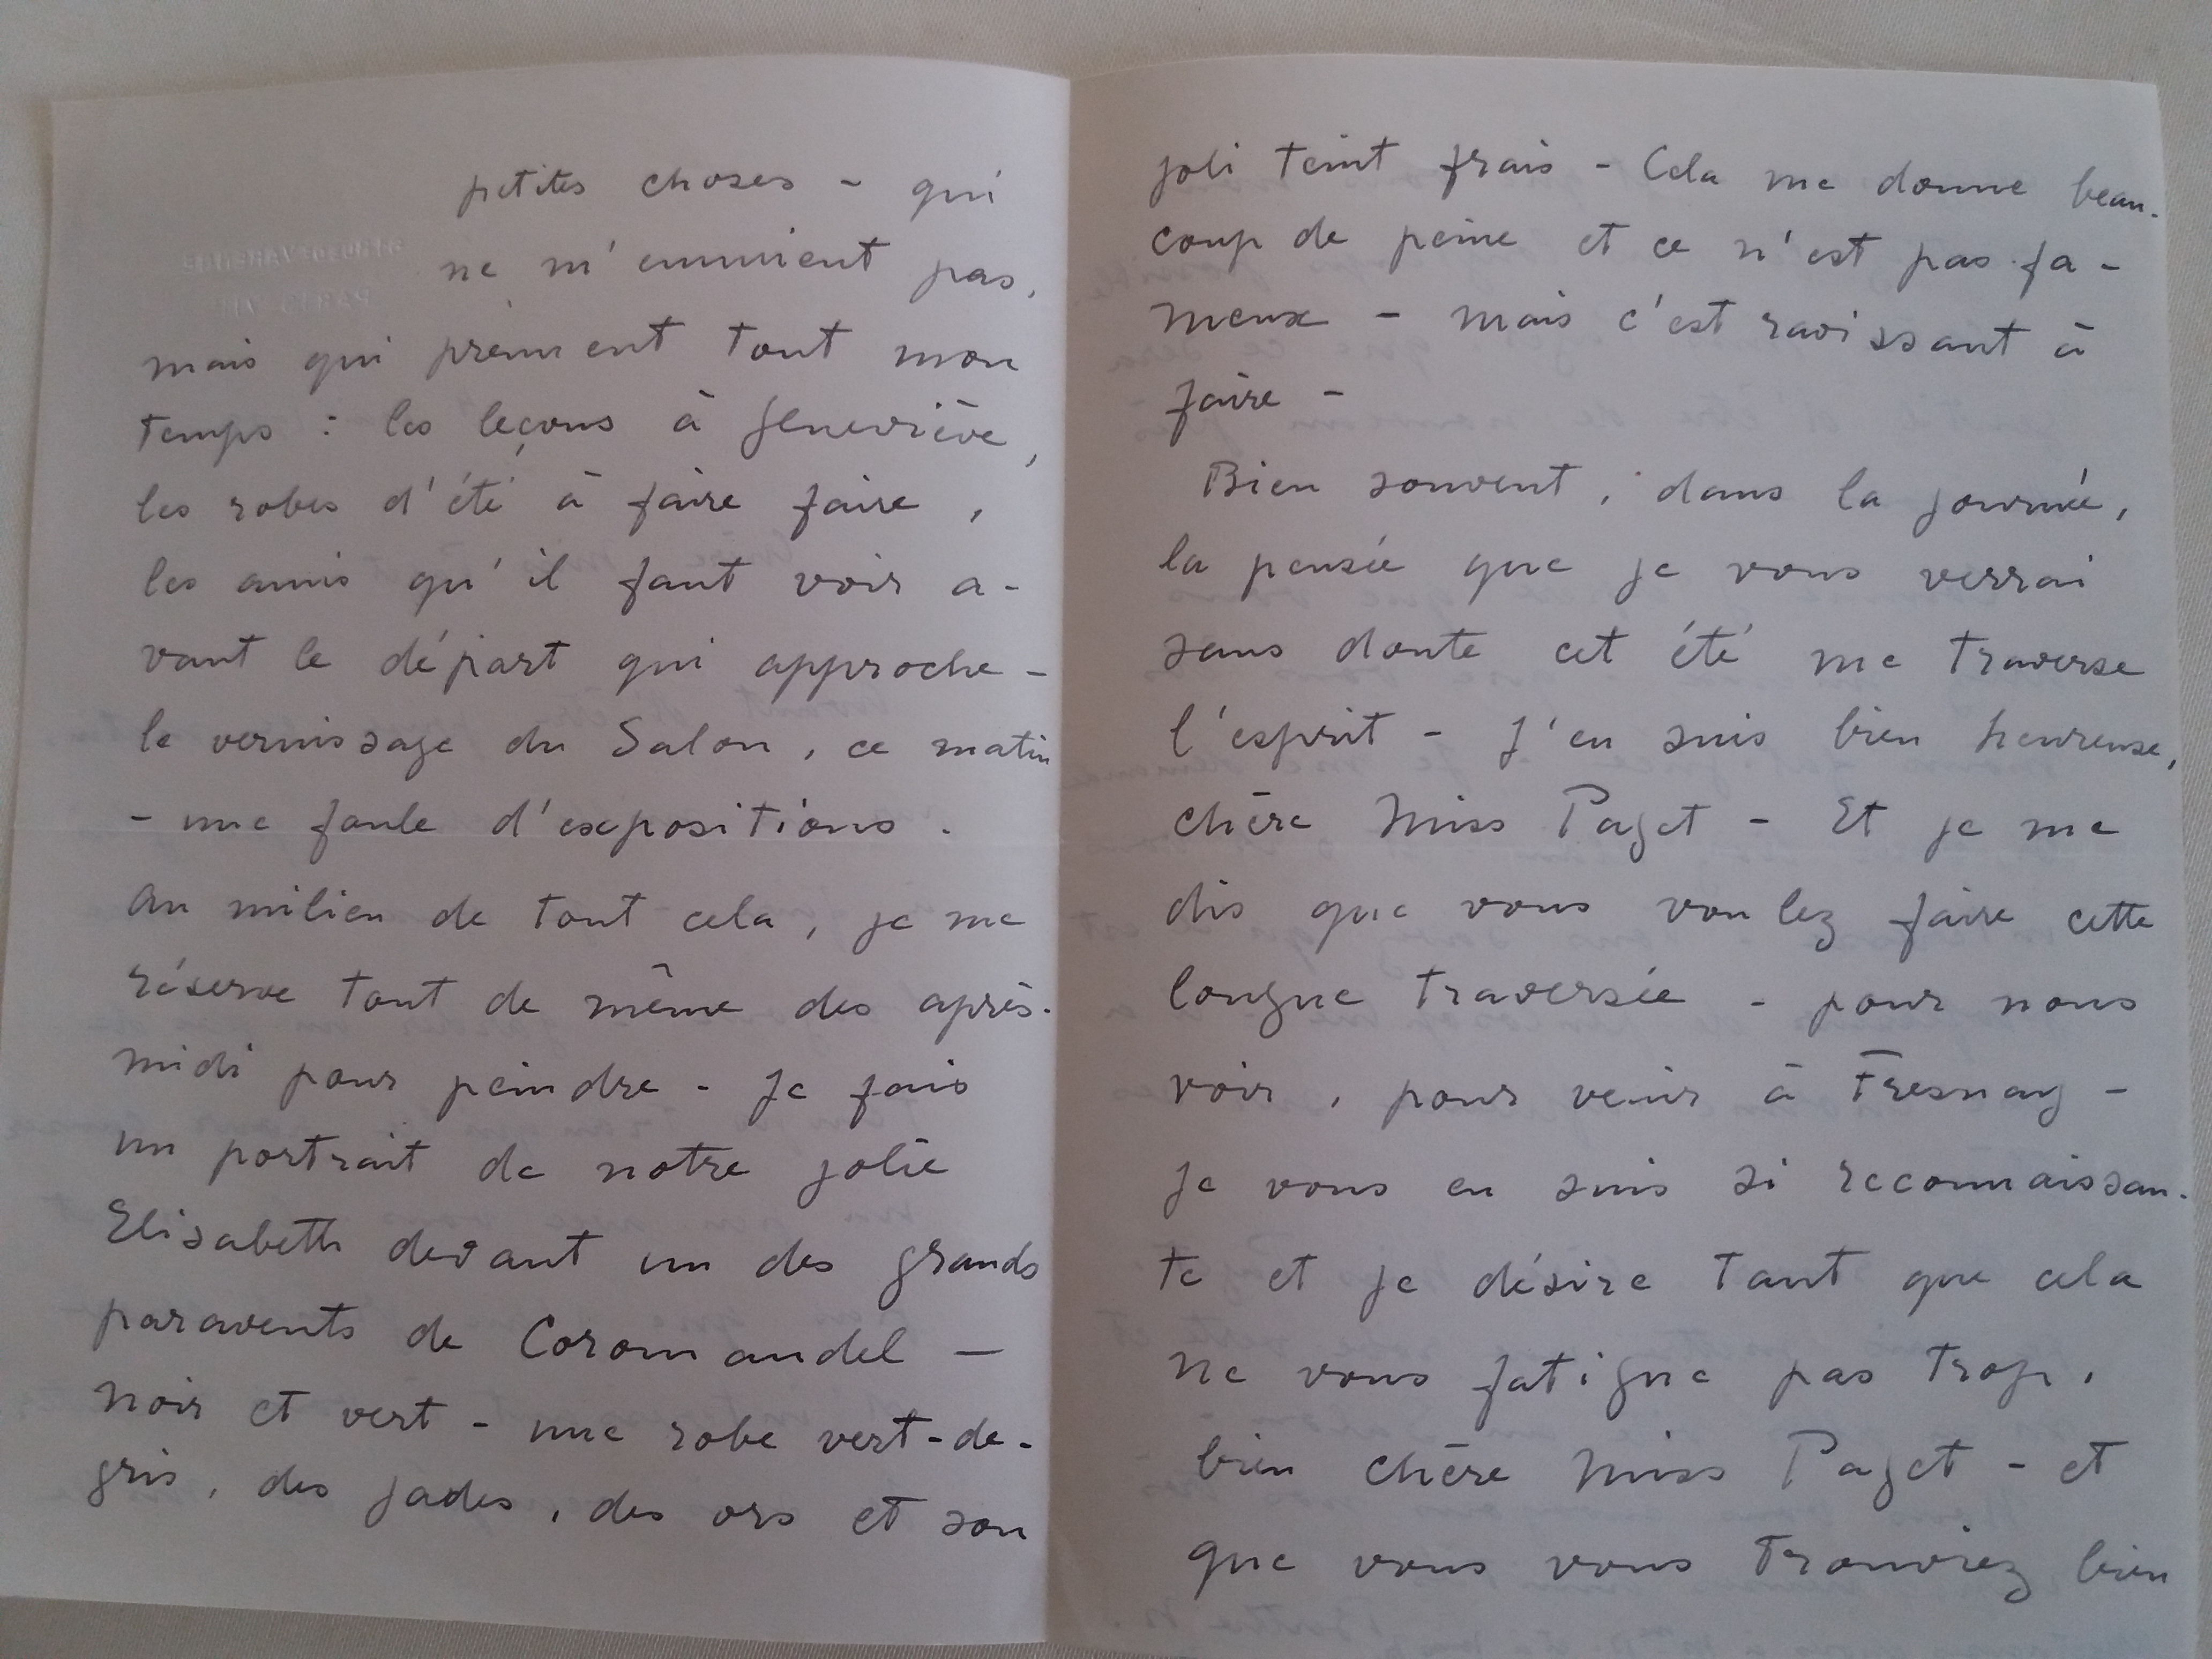 petites choses - qui
ne m'ennuient pas,
mais qui prennent tout mon
temps : les leçons à Geneviève,
les robes d'été à faire faire,
les amis qu'il faut voir a-
vant le départ qui approche -
le vernissage du Salon, ce matin
- une foule d'expositions.
au milieu de tout cela, je me
réserve tout de même des après-
midi pour peindre - Je fais
un portrait de notre jolie
Elisabeth devant un des grands
paravents de Coromandel -
noir et vert - une robe vert-de-
gris, des jades, des ors et son
joli teint frais - Cela me donne beau-
coup de peine et ce n'est pas fa-
meux - mais c'est ravissant à
faire -
Bien souvent, dans la journée,
la pensée que je vous verrai
sans doute cet été me traverse
l'esprit - J'en suis bien heureuse,
chère Miss Paget - Et je me
dis que vous voulez faire cette
longue traversée - pour nous
voir, pour venir à Fresnay -
Je vous en suis si reconnaissan-
te et je désire tant que cela
ne vous fatigue pas trop,
bien chère Miss Paget - et
que vous vous trouviez bien